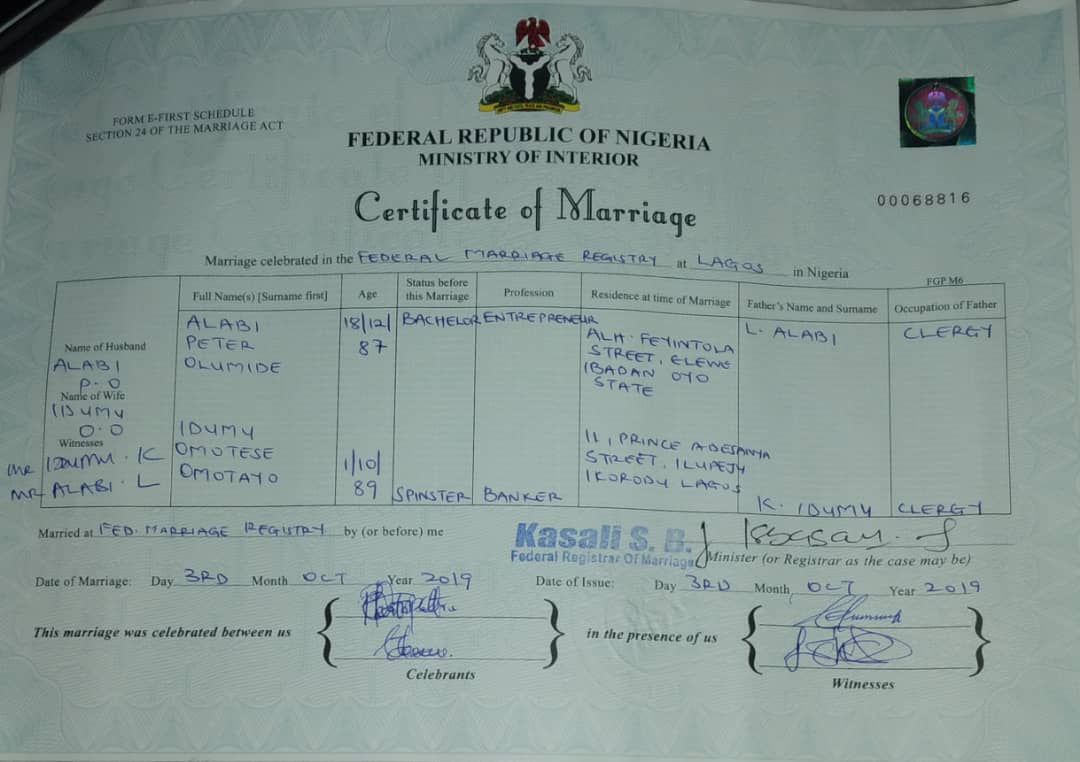 FORM E-FIRST SCHEDULE
SECTION 24 OF THE MARRIAGE ACT
FEDERAL REPUBLIC OF NIGERIA
MINISTRY OF INTERIOR
Certificate of Marriage
00068816
Marriage celebrated in the FEDERAL MARRIAGE REGISTRY at LAGOS in Nigeria
FGP M6
Full Name(s) [Surname first]
Age
Status before
this Marriage
Profession
Residence at time of Marriage
Father's Name and Surname
Occupation of Father
Name of Husband
ALABI
P. O
ALABI
PETER
OLUMIDE
18/12/
87
BACHELOR
ENTREPRENEUR
ALH. FEYINTOLA
STREET, ELEWE
IBADAN OYO
STATE
L. ALABI
CLERGY
Name of Wife
IDUMU
O. O
IDUMU
OMOTESE
OMOTAYO
1/10/
89
SPINSTER
BANKER
11, PRINCE ADESANYA
STREET, ILUPEJU
IKORODU LAGOS
K. IDUMU
CLERGY
Witnesses
MR IDUMU. K
MR ALABI. L
Married at FED. MARRIAGE REGISTRY by (or before) me
Kasali S. B.
Federal Registrar Of Marriage
Minister (or Registrar as the case may be)
Date of Marriage: Day 3RD Month OCT Year 2019 Date of Issue: Day 3RD Month OCT Year 2019
This marriage was celebrated between us
Celebrants
in the presence of us
Witnesses